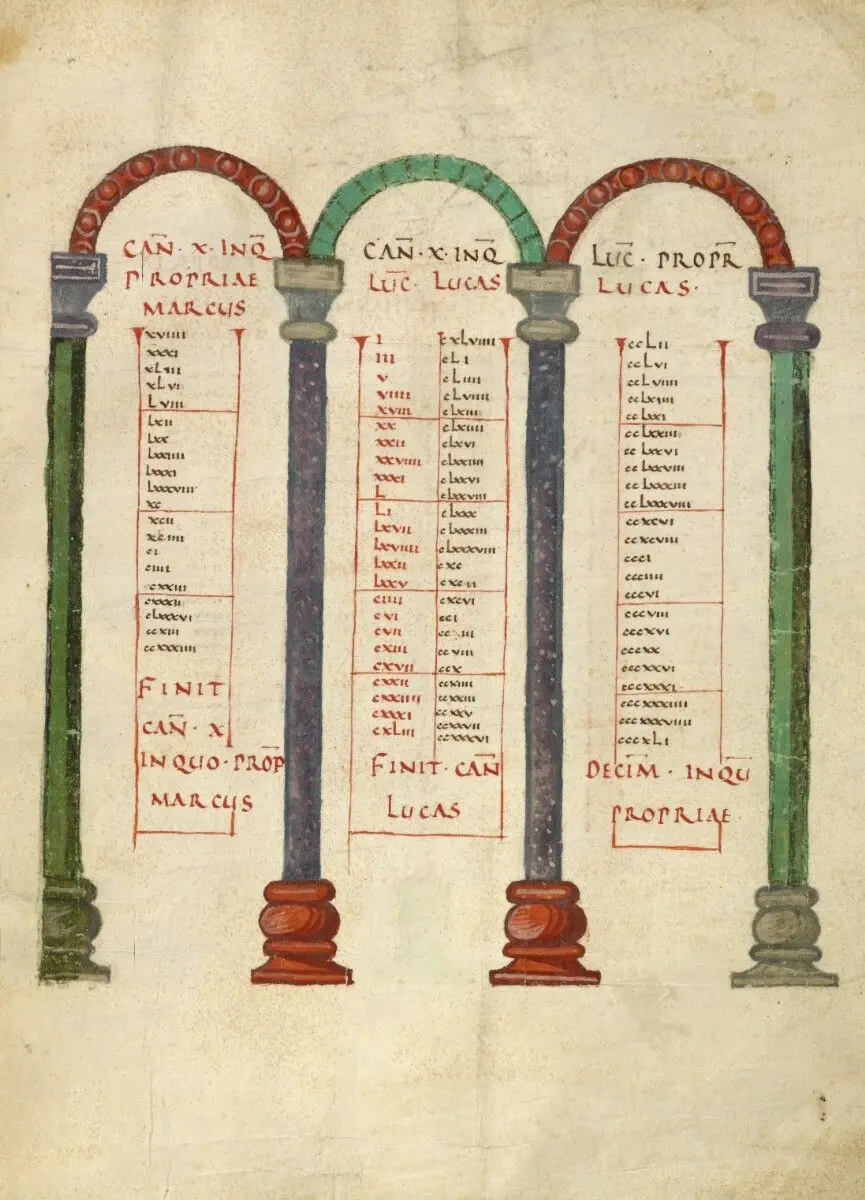 CAN̄ · X · INQ̄
PROPRIAE
MARCUS
xviiii
xxxi
xLiii
xLvi
Lviii
Lxii
Lxx
Lxxiiii
Lxxxi
Lxxxviii
xc
xcii
xciiii
ci
ciiii
cxxiii
cxxxii
cLxxxvi
ccxiii
ccxxxiiii
FINIT
CAN̄ · X
INQUO · PROP̄
MARCUS
CAN̄ · X · INQ̄
LUC̄ · LUCAS
I cxLviiii
III cLi
V cLiiii
VIIII cLviiii
XVIII cLxiii
XX cLxiiii
XXII cLxvi
XXVIIII cLxxiiii
XXXI cLxxvi
L cLxxviii
LI cLxxx
LXVII cLxxxiii
LXVIIII cLxxxviii
LXXII cxc
LXXV cxcii
CIIII cxcvi
CVI cci
CVII
CXIII ccviii
CXVII ccx
CXXII ccxiiii
CXXIIII ccxxiii
CXXXI ccxxv
CXLIII ccxxvii
ccxxxvi
FINIT · CAN̄
LUCAS
LUC̄ · PROPR̄
LUCAS ·
ccLii
ccLvi
ccLviiii
ccLxiiii
ccLxxi
ccLxxiii
ccLxxvi
ccLxxviii
ccLxxxiii
ccLxxxviii
ccxcvi
ccxcviii
ccci
ccciiii
cccvi
cccviii
cccxvi
cccxx
cccxxvi
cccxxxi
cccxxxiiii
cccxxxviiii
cccxLi
DECIM̄ · INQŪ
PROPRIAE ·